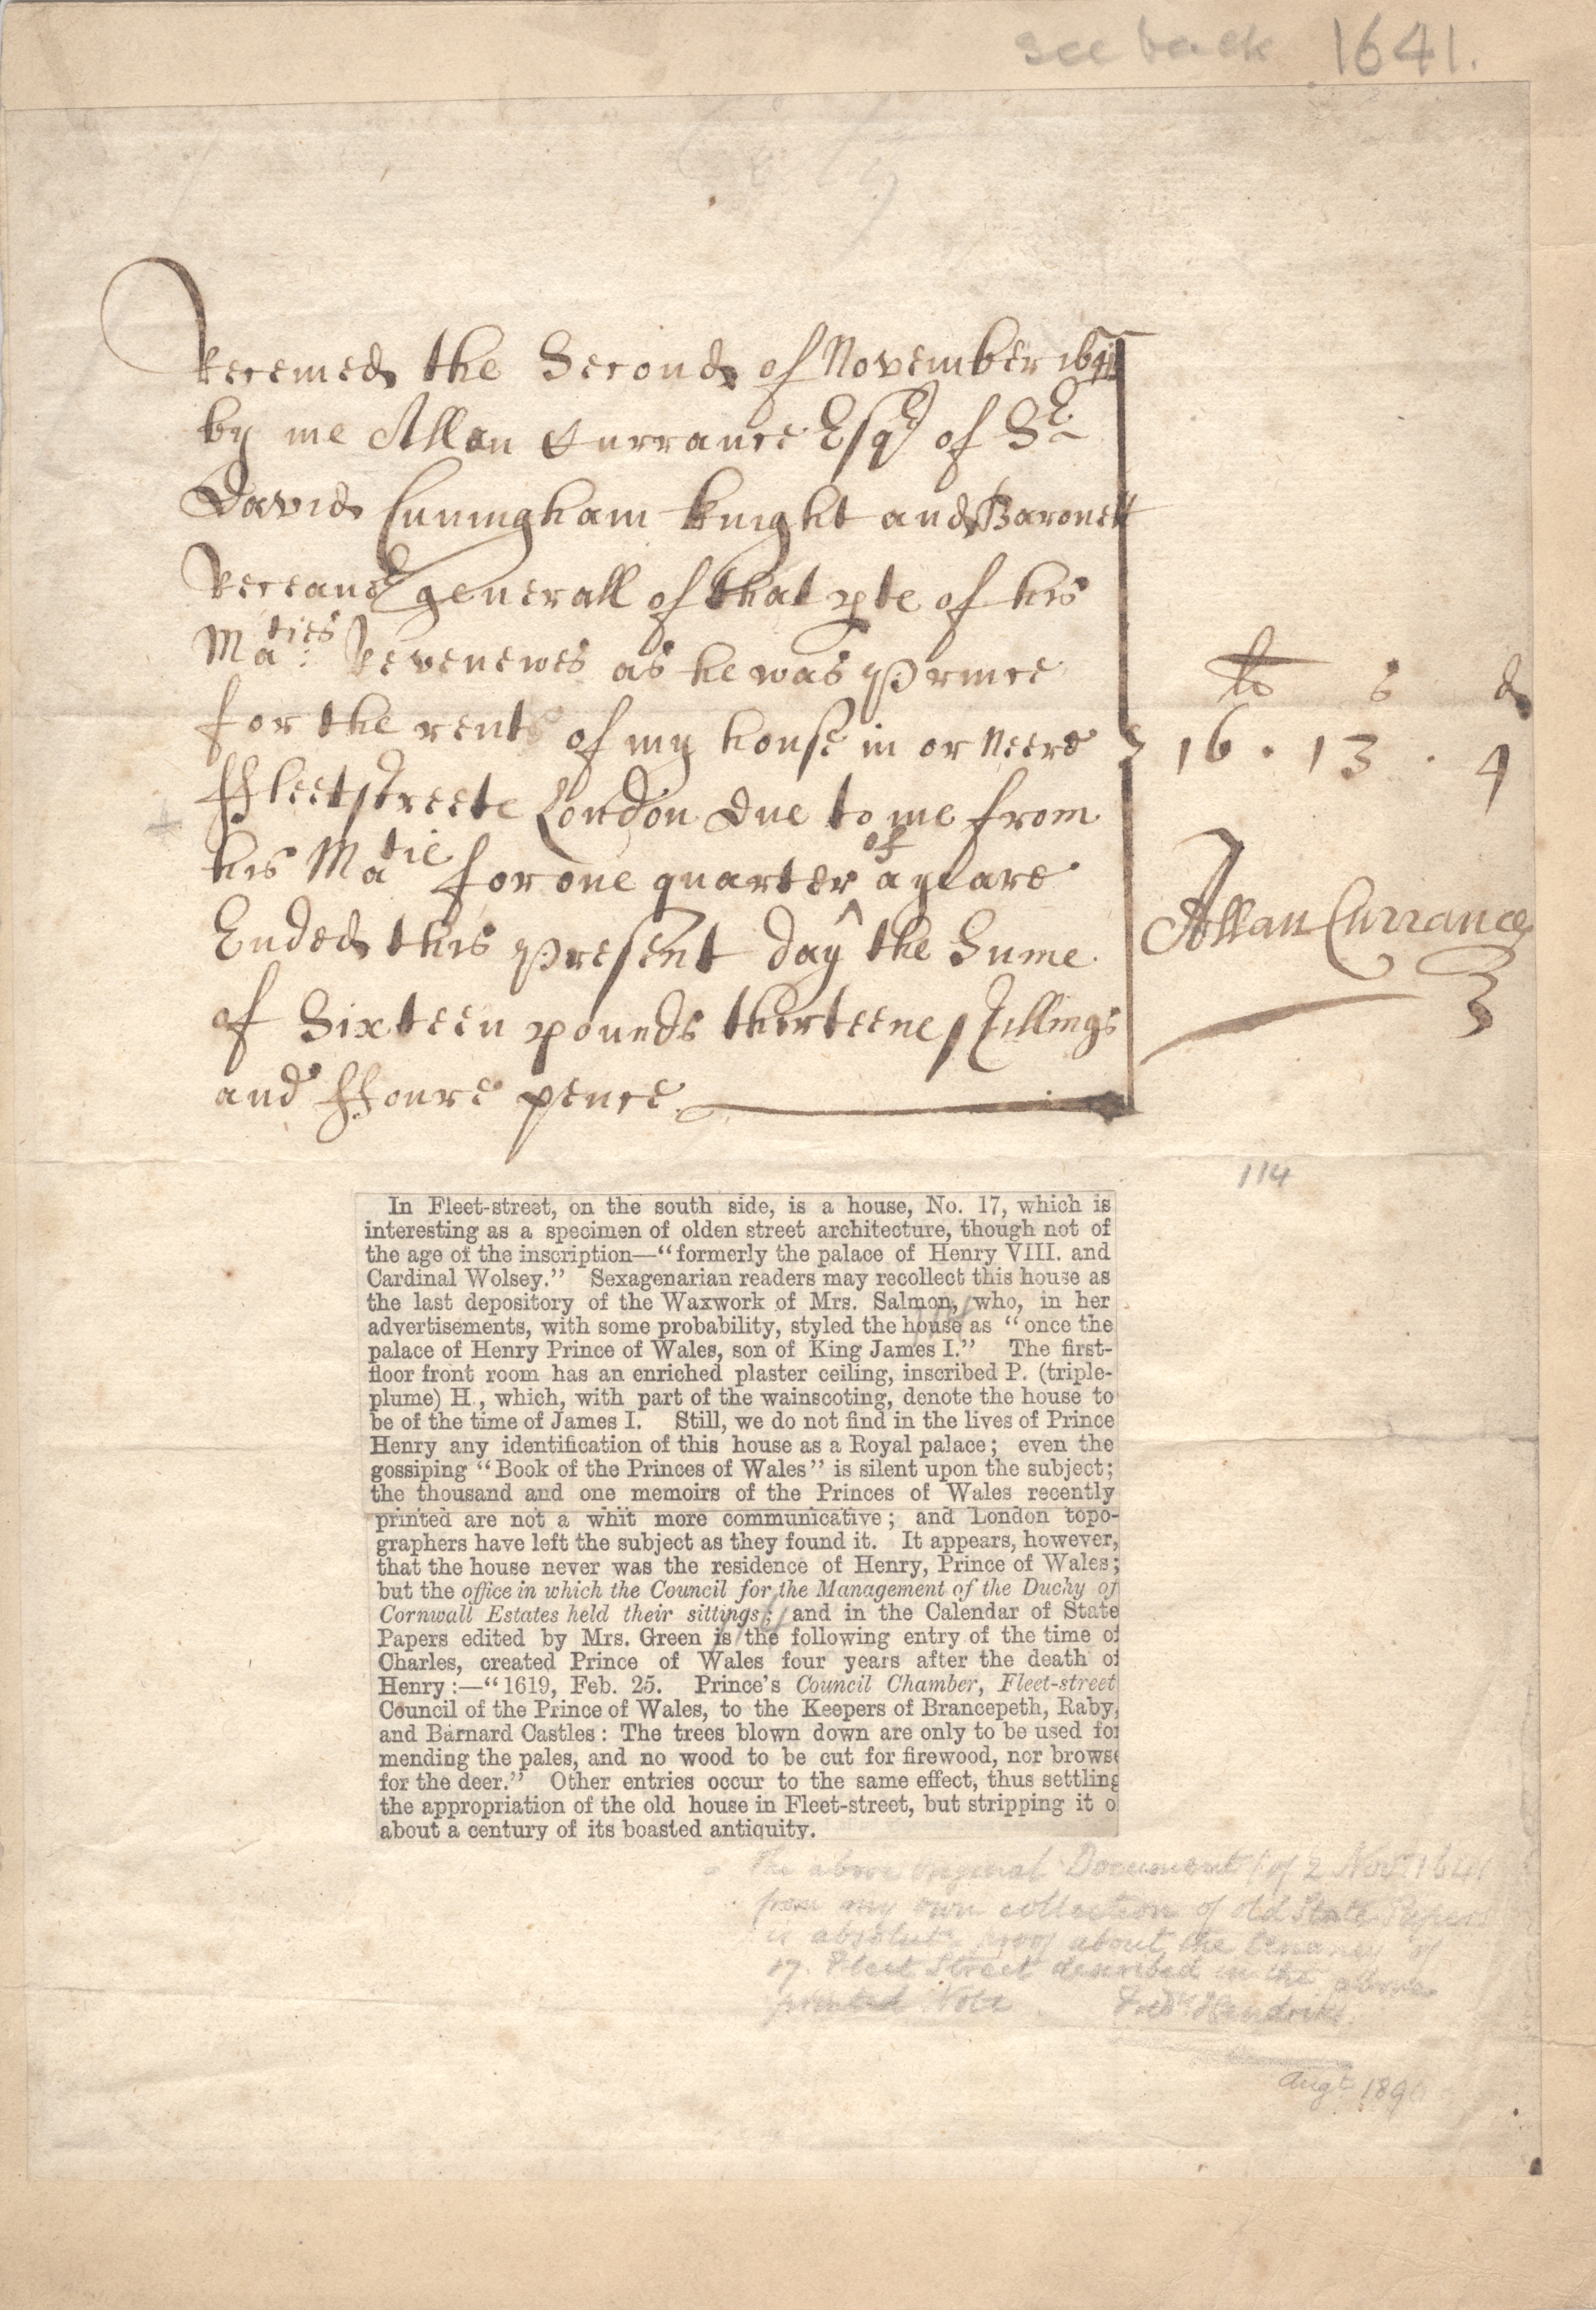 see back 1641.
Receiued the Second of November 1641
by me Allan Currance Esqr of Sr
David Cuningham knight and Baronett
Receauer generall of that pte of his
Maties Revenewes as he was Prince
for the rent of my house in or neere
ffleetstreete London due to me from
his Matie for one quarter of a yeare
Ended this present day the Sume
of Sixteen pounds thirteene shillings
and ffoure pence
li s d
16 . 13 . 4
Allan Currance
114
In Fleet-street, on the south side, is a house, No. 17, which is
interesting as a specimen of olden street architecture, though not of
the age of the inscription—“formerly the palace of Henry VIII. and
Cardinal Wolsey.” Sexagenarian readers may recollect this house as
the last depository of the Waxwork of Mrs. Salmon, who, in her
advertisements, with some probability, styled the house as “once the
palace of Henry Prince of Wales, son of King James I.” The first-
floor front room has an enriched plaster ceiling, inscribed P. (triple-
plume) H., which, with part of the wainscoting, denote the house to
be of the time of James I. Still, we do not find in the lives of Prince
Henry any identification of this house as a Royal palace; even the
gossiping “Book of the Princes of Wales” is silent upon the subject;
the thousand and one memoirs of the Princes of Wales recently
printed are not a whit more communicative; and London topo-
graphers have left the subject as they found it. It appears, however,
that the house never was the residence of Henry, Prince of Wales;
but the office in which the Council for the Management of the Duchy of
Cornwall Estates held their sittings; and in the Calendar of State
Papers edited by Mrs. Green is the following entry of the time of
Charles, created Prince of Wales four years after the death of
Henry:—“1619, Feb. 25. Prince's Council Chamber, Fleet-street
Council of the Prince of Wales, to the Keepers of Brancepeth, Raby,
and Barnard Castles: The trees blown down are only to be used for
mending the pales, and no wood to be cut for firewood, nor browse
for the deer.” Other entries occur to the same effect, thus settling
the appropriation of the old house in Fleet-street, but stripping it o
about a century of its boasted antiquity.
The above original Document of 2 Novr 1641
from my own collection of old State Papers
is absolute proof about the tenancy of
17. Fleet Street described in the above
printed Note Fredk Hendriks.
Augt 189